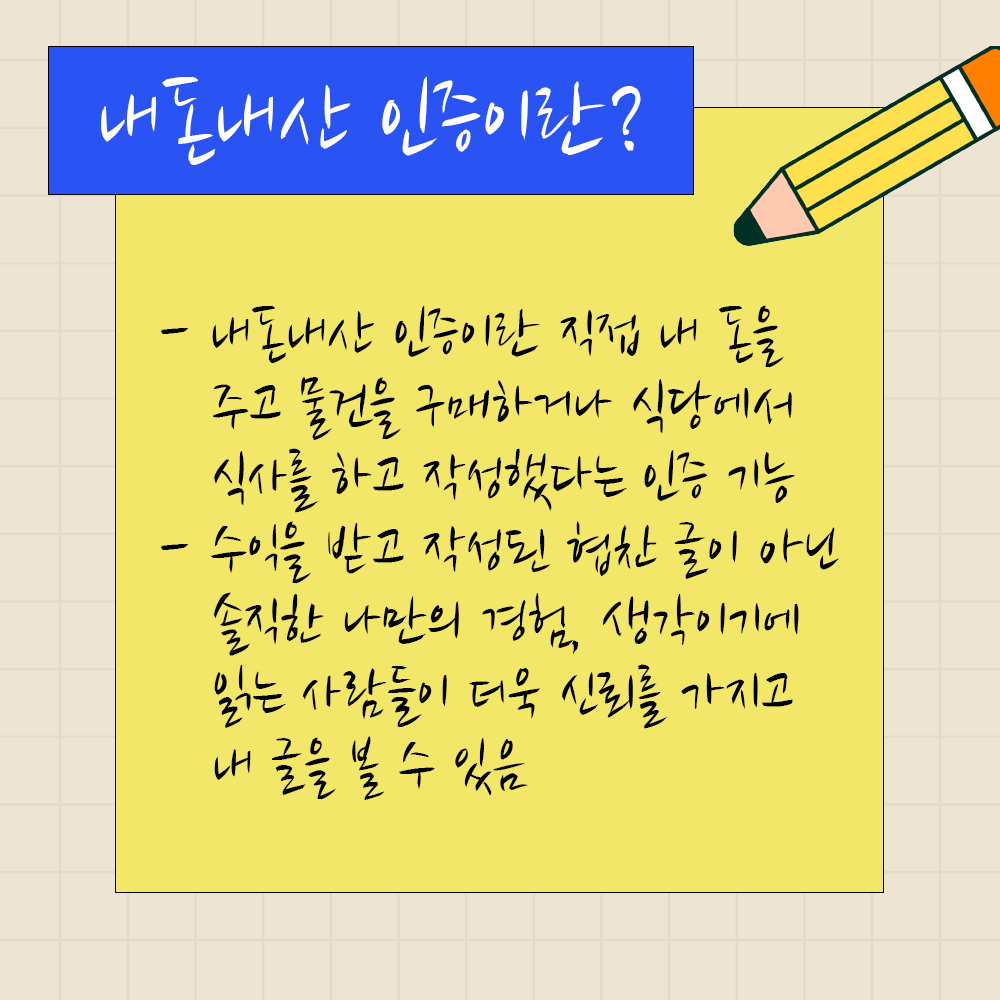 내돈내산 인증이란?
- 내돈내산 인증이란 직접 내 돈을
주고 물건을 구매하거나 식당에서
식사를 하고 작성했다는 인증 기능
- 수익을 받고 작성된 협찬 글이 아닌
솔직한 나만의 경험, 생각이기에
읽는 사람들이 더욱 신뢰를 가지고
내 글을 볼 수 있음